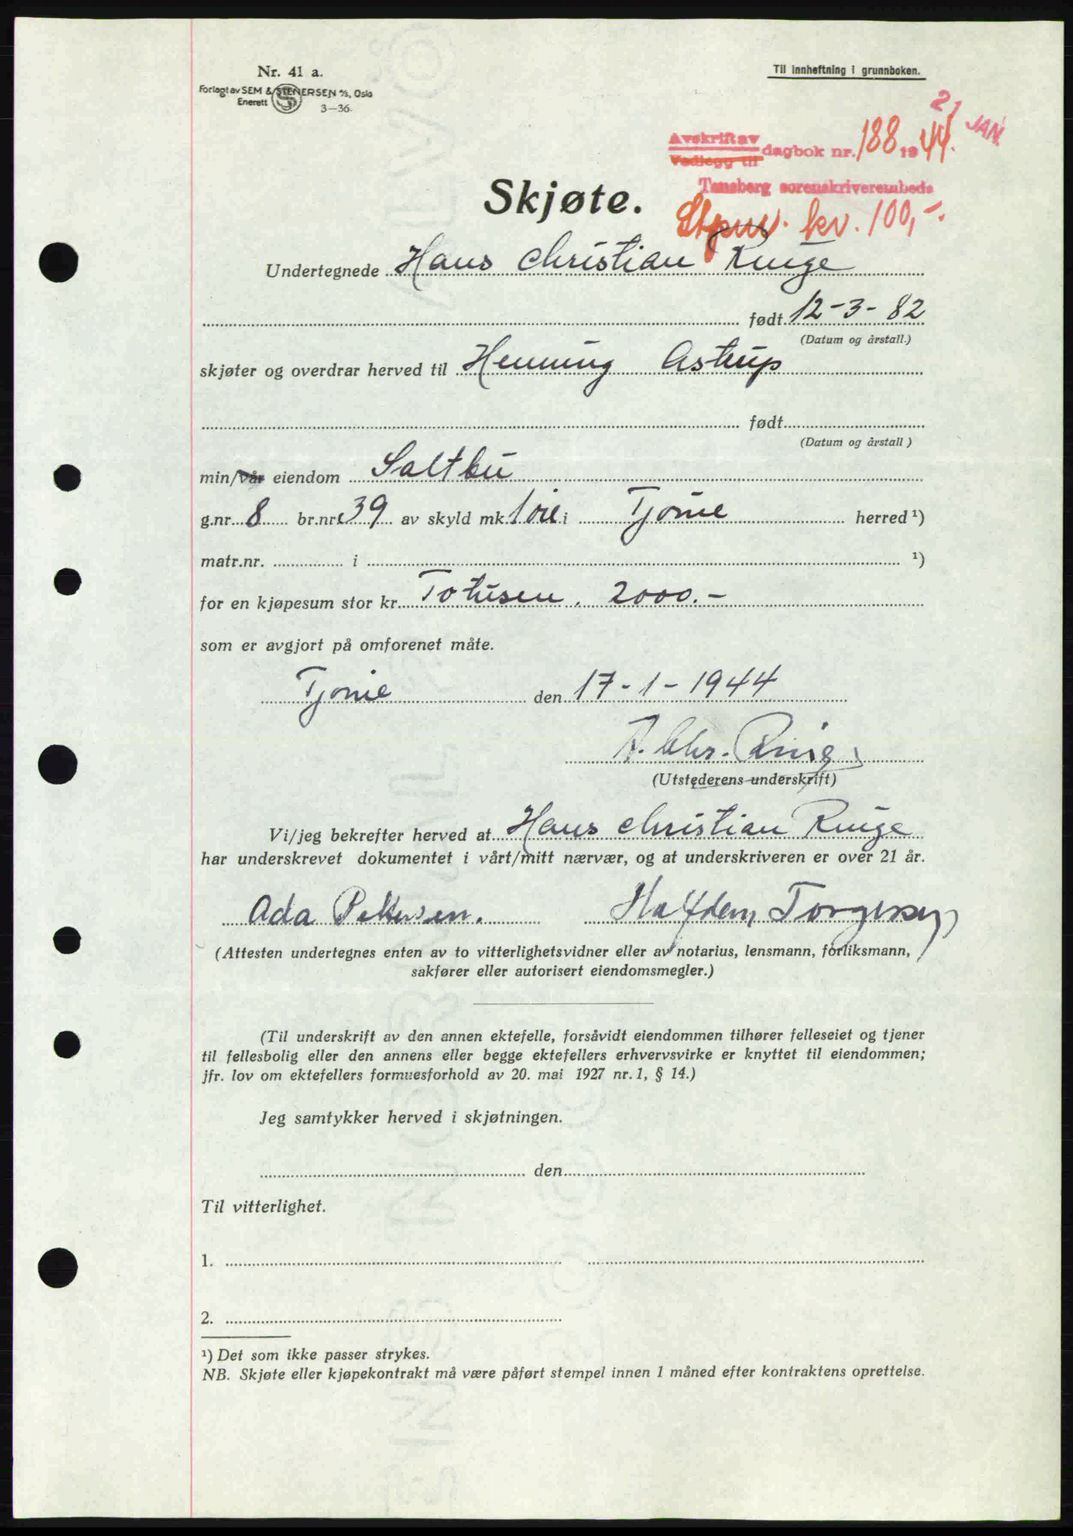 Nr. 41 a.
Forlagt av SEM & STENERSEN A/S, Oslo
Enerett
3-36
Til innheftning i grunnboken.
21 JAN.
Avskrift av
Vedlegg til
dagbok nr. 188 1944.
Tønsberg sorenskriverembede
Skjøte.
kv. 100,-.
Undertegnede Hans Christian Ringe
født 12-3-82
(Datum og årstall.)
skjøter og overdrar herved til Henning Astrup
født
(Datum og årstall)
min/vår eiendom Saltbu
g.nr. 8 br.nr. 39 av skyld mk. 1 øre i Tjøme herred ¹)
matr.nr. i ¹)
for en kjøpesum stor kr. Totusen. 2000.-
som er avgjort på omforenet måte.
Tjøme den 17-1-1944
H. Chr. Ringe
(Utstederens underskrift)
Vi/jeg bekrefter herved at Hans Christian Ringe
har underskrevet dokumentet i vårt/mitt nærvær, og at underskriveren er over 21 år.
Ada Pettersen. Halfdan Torgersen
(Attesten undertegnes enten av to vitterlighetsvidner eller av notarius, lensmann, forliksmann,
sakfører eller autorisert eiendomsmegler.)
(Til underskrift av den annen ektefelle, forsåvidt eiendommen tilhører felleseiet og tjener
til fellesbolig eller den annens eller begge ektefellers erhvervsvirke er knyttet til eiendommen;
jfr. lov om ektefellers formuesforhold av 20. mai 1927 nr. 1, § 14.)
Jeg samtykker herved i skjøtningen.
den
Til vitterlighet.
1.
2.
¹) Det som ikke passer strykes.
NB. Skjøte eller kjøpekontrakt må være påført stempel innen 1 måned efter kontraktens oprettelse.